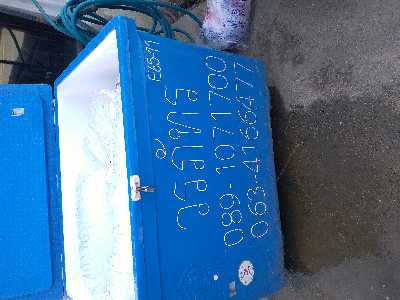 E65-99
วรภัทร
089-1071700
063-4166477